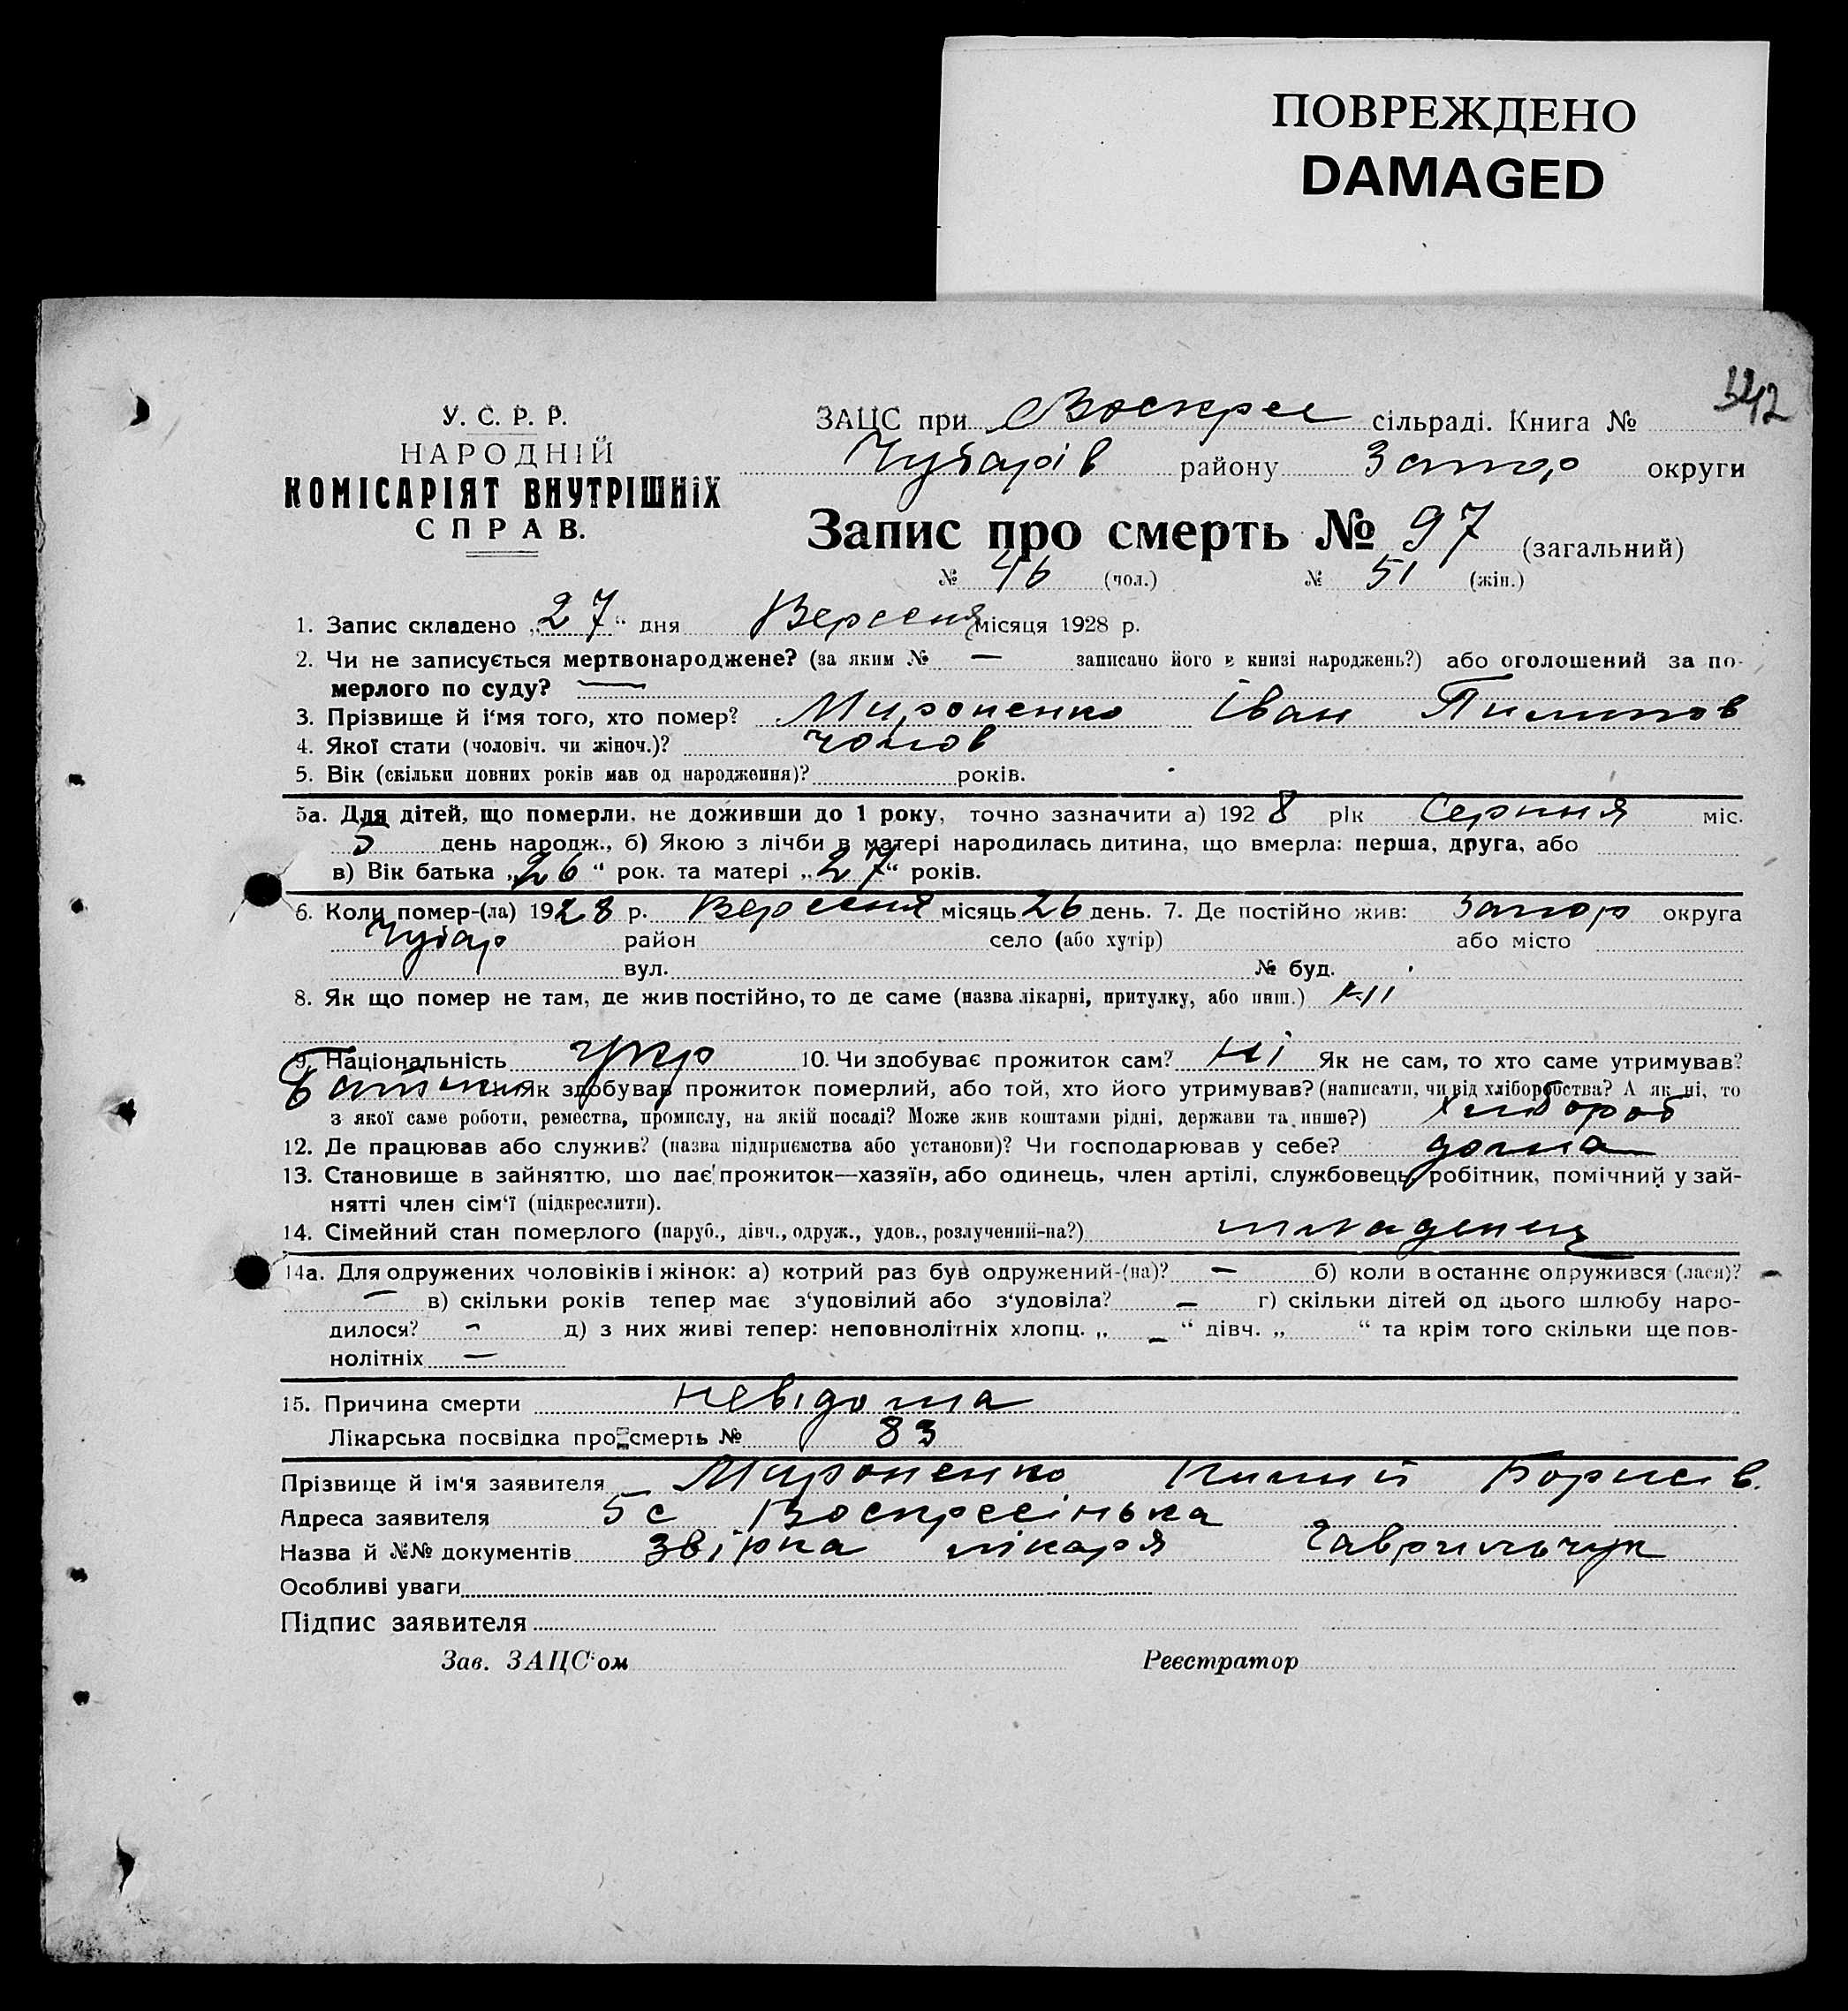 ПОВРЕЖДЕНО
DAMAGED
342
У. С. Р. Р.
НАРОДНІЙ
КОМІСАРІЯТ ВНУТРІШНІХ
СПРАВ.
ЗАЦС при Воскрес сільраді. Книга №
Чубарів району Запор округи
Запис про смерть № 97 (загальний)
№ 46 (чол.) № 51 (жін.)
1. Запис складено „27“ дня Вересня місяця 1928 р.
2. Чи не записується мертвонароджене? (за яким № — записано його в книзі народжень?) або оголошений за по-
мерлого по суду? —
3. Прізвище й і'мя того, хто помер? Мироненко Іван Пилипов
4. Якої стати (чоловіч. чи жіноч.)? чолов
5. Вік (скільки повних років мав од народження)? років.
5а. Для дітей, що померли, не доживши до 1 року, точно зазначити а) 1928 рік Серпня міс.
5 день народж., б) Якою з лічби в матері народилась дитина, що вмерла: перша, друга, або
в) Вік батька „26“ рок. та матері „27“ років.
6. Коли помер-(ла) 1928 р. Вересня місяць 26 день. 7. Де постійно жив: Запор округа
Чубар район село (або хутір) або місто
вул. № буд.
8. Як що помер не там, де жив постійно, то де саме (назва лікарні, притулку, або инш.)
9. Національність Укр 10. Чи здобуває прожиток сам? Ні Як не сам, то хто саме утримував?
Батьки Як здобував прожиток померлий, або той, хто його утримував? (написати, чи від хліборобства? А як ні, то
з якої саме роботи, ремества, промислу, на якій посаді? Може жив коштами рідні, держави та инше?) хлібороб
12. Де працював або служив? (назва підприємства або установи)? Чи господарював у себе? дома
13. Становище в зайняттю, що дає прожиток—хазяїн, або одинець, член артілі, службовець, робітник, помічний у зай-
нятті член сім'ї (підкреслити).
14. Сімейний стан померлого (паруб., дівч., одруж., удов., розлучений-на?) младенец
14а. Для одружених чоловіків і жінок: а) котрий раз був одружений-(на)? — б) коли в останнє одружився (лася)? —
— в) скільки років тепер має з'удовілий або з'удовіла? — г) скільки дітей од цього шлюбу наро-
дилося? - д) з них живі тепер: неповнолітніх хлопц. „ — “ дівч. „ “ та крім того скільки ще пов-
нолітніх —
15. Причина смерти невідома
Лікарська посвідка про смерть № 83
Прізвище й ім'я заявителя Мироненко Пилип Борисів.
Адреса заявителя с Воскресінька
Назва й №№ документів Звірка лікаря Гаврильчук
Особливі уваги
Підпис заявителя
Зав. ЗАЦС'ом Реєстратор